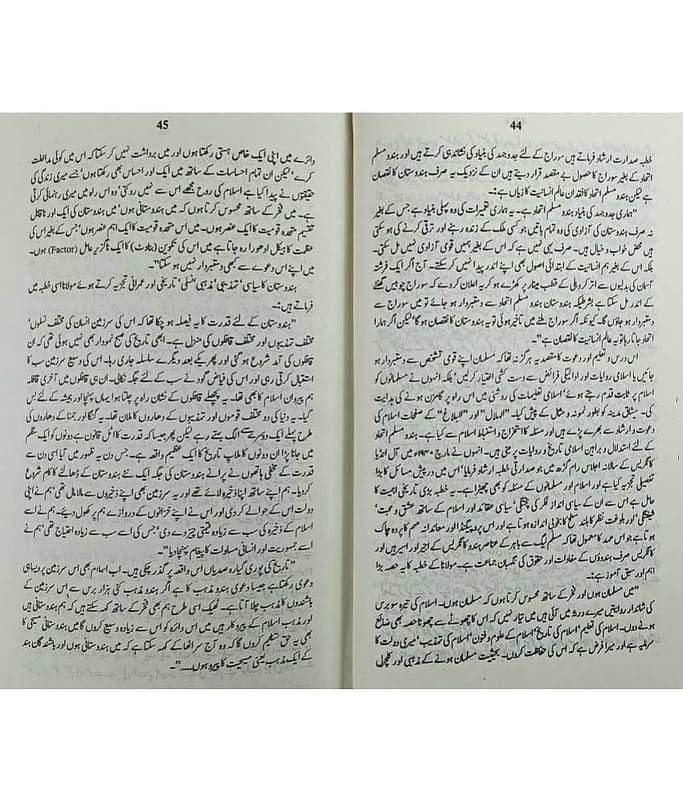 44
خطبہ صدارت ارشاد فرماتے ہیں سوراج کے لئے جدوجہد کی بنیاد کی نشاندہی کرتے ہیں اور ہندو مسلم
اتحاد کے بغیر سوراج کا حصول بے مقصد قرار دیتے ہیں ان کے نزدیک یہ صرف ہندوستان کا نقصان
ہے لیکن ہندو مسلم اتحاد کا فقدان عالم انسانیت کا زیاں ہے:۔
"ہماری جدوجہد کی بنیاد ہندو مسلم اتحاد ہے۔ یہ ہماری تعمیرات کی وہ پہلی بنیاد ہے جس کے بغیر
نہ صرف ہندوستان کی آزادی کی وہ تمام باتیں جو کسی ملک کے زندہ رہنے اور ترقی کرنے کی ہو سکتی
ہیں محض خواب و خیال ہیں۔ صرف یہی نہیں ہے کہ اس کے بغیر ہمیں قومی آزادی نہیں مل سکتی۔
بلکہ اس کے بغیر ہم انسانیت کے ابتدائی اصول بھی اپنے اندر پیدا نہیں کر سکتے۔ آج اگر ایک فرشتہ
آسمان کی بدلیوں سے اتر کر دلی کے قطب مینار پر کھڑے ہو کر یہ اعلان کر دے کہ سوراج چوبیس گھنٹے
کے اندر مل سکتا ہے بشرطیکہ ہندوستان ہندو مسلم اتحاد سے دستبردار ہو جائے تو میں سوراج سے
دستبردار ہو جاؤں گا۔ کیونکہ اگر سوراج ملنے میں تاخیر ہوئی تو یہ ہندوستان کا نقصان ہو گا' لیکن اگر ہمارا
اتحاد جاتا رہا تو یہ عالم انسانیت کا نقصان ہے"۔
اس درس و تعلیم اور دعوت کا مقصد یہ ہرگز نہ تھا کہ مسلمان اپنے قومی تشخص سے دستبردار ہو
جائیں یا اسلامی روایات اور ادائیگی فرائض سے دست کشی اختیار کر لیں' بلکہ انہوں نے مسلمانوں کو
اسلام پر ثابت قدم رہتے ہوئے' اسلامی تعلیمات کی روشنی میں اس راہ پر گامزن ہونے کی ہدایت
کی۔ میثاق مدینہ کو بطور نمونہ و مثال کے پیش کیا۔ "الہلال" اور "البلاغ" کے صفحات اسلام کی
دعوت و ارشاد سے بھرے پڑے ہیں اور مسئلہ کو استخراج و استنباط اسلام سے کیا ہے۔ ہندو مسلم اتحاد
کے لئے استدلال و براہین اسلامی تاریخ و روایات پر مبنی ہیں۔ انہوں نے مارچ ۱۹۴۰ء میں آل انڈیا
کانگریس کے سالانہ اجلاس رام گڑھ میں جو صدارتی خطبہ ارشاد فرمایا' اس میں درپیش مسائل کا بڑا
تفصیلی تجزیہ کیا ہے اور اسلام اور مسلمانوں کے مسئلہ کو بھی چھیڑا ہے۔ یہ خطبہ بڑی تاریخی اہمیت کا
حامل ہے اس سے ان کے سیاسی انداز فکر کی پختگی' سیاسی عقائد اور اسلام کے ساتھ عشق و محبت'
شیفتگی' اور بلوغت نظر کا بلند سطح کا بخوبی اندازہ ہوتا ہے اور اس پروپیگنڈا اور معاندانہ مہم کا پردہ چاک
ہوتا ہے جو اس عہد کا معمول تھا کہ مسلم لیگ سے باہر کے عناصر ہندو کانگریس کے اجیر اور اسیر ہیں اور
کانگریس صرف ہندوؤں کے مفادات اور حقوق کی نگہبان جماعت ہے۔ مولانا کے خطبہ کا یہ حصہ بڑا
اہم اور سبق آموز ہے:۔
"میں مسلمان ہوں اور فخر کے ساتھ محسوس کرتا ہوں کہ مسلمان ہوں۔ اسلام کی تیرہ سو برس
کی شاندار روایتیں میرے ورثہ میں آئی ہیں میں تیار نہیں کہ اس کا چھوٹے سے چھوٹا حصہ بھی ضائع
ہونے دوں۔ اسلام کی تعلیم' اسلام کی تاریخ' اسلام کے علوم و فنون' اسلام کی تہذیب' میری دولت کا
سرمایہ ہے اور میرا فرض ہے کہ اس کی حفاظت کروں۔ بحیثیت مسلمان ہونے کے مذہبی اور کلچرل
45
دائرے میں اپنی ایک خاص ہستی رکھتا ہوں اور میں برداشت نہیں کر سکتا کہ اس میں کوئی مداخلت
کرے' لیکن ان تمام احساسات کے ساتھ میں ایک اور احساس بھی رکھتا ہوں' جسے میری زندگی کی
حقیقتوں نے پیدا کیا ہے اسلام کی روح مجھے اس سے نہیں روکتی' وہ اس راہ میں میری رہنمائی کرتی
ہے۔ میں فخر کے ساتھ محسوس کرتا ہوں کہ میں ہندوستانی ہوں' میں ہندوستان کی ایک اور ناقابل
تقسیم متحدہ قومیت کا ایک عنصر ہوں۔ میں اس متحدہ قومیت کا ایک اہم عنصر ہوں' جس کے بغیر اس کی
عظمت کا ہیکل ادھورا رہ جاتا ہے میں اس کی تکوین (بناوٹ) کا ایک ناگزیر عامل (Factor) ہوں۔
میں اپنے اس دعوے سے کبھی دستبردار نہیں ہو سکتا"۔
ہندوستان کا سیاسی' تہذیبی' مذہبی' نسلی' تاریخی اور عمرانی تجزیہ کرتے ہوئے مولانا اسی خطبہ میں
فرماتے ہیں:۔
"ہندوستان کے لئے قدرت کا یہ فیصلہ ہو چکا تھا کہ اس کی سرزمین انسان کی مختلف نسلوں'
مختلف تہذیبوں اور مختلف مذاہب کے قافلوں کی منزل ہے۔ ابھی تاریخ کی صبح نمودار بھی نہیں ہوئی تھی کہ ان
قافلوں کی آمد شروع ہو گئی اور پھر یکے بعد دیگرے سلسلہ جاری رہا۔ اس کی وسیع سرزمین سب کا
استقبال کرتی رہی اور اس کی فیاض گود نے سب کے لئے جگہ نکالی۔ ان ہی قافلوں میں آخری قافلہ
ہم پیروان اسلام کا بھی تھا۔ یہ پچھلے قافلوں کے نشان راہ پر چلتا ہوا یہاں پہنچا اور ہمیشہ کے لئے بس
گیا۔ یہ دنیا کی دو مختلف قوموں اور تہذیبوں کے دھاروں کا ملان تھا۔ یہ گنگا اور جمنا کے دھاروں کی
طرح پہلے ایک دوسرے سے الگ بہتے رہے لیکن پھر جیسا کہ قدرت کا اٹل قانون ہے دونوں کو ایک سنگم
میں جانا پڑا ان دونوں کا ملاپ تاریخ کا ایک عظیم واقعہ ہے۔ جس دن یہ ظہور میں آیا اسی دن سے
قدرت کے مخفی ہاتھوں نے پرانے ہندوستان کی جگہ ایک نئے ہندوستان کے ڈھالنے کا کام شروع
کر دیا۔ ہم اپنے ساتھ اپنا ذخیرہ لائے تھے اور یہ سرزمین بھی اپنے ذخیروں سے مالا مال تھی' ہم نے اپنی
دولت اس کے حوالے کر دی اور اس نے اپنے خزانوں کے دروازے ہم پر کھول دیئے' ہم نے اسے
اسلام کے ذخیرہ کی سب سے زیادہ قیمتی چیز دے دی' جس کی اسے سب سے زیادہ احتیاج تھی' ہم نے
اسے جمہوریت اور انسانی مساوات کا پیغام پہنچا دیا"۔
"تاریخ کی پوری گیارہ صدیاں اس واقعہ پر گذر چکی ہیں۔ اب اسلام بھی اس سرزمین پر ویسا ہی
دعویٰ رکھتا ہے جیسا دعویٰ ہندو مذہب کا ہے اگر ہندو مذہب کئی ہزار برس سے اس سرزمین کے
باشندوں کا مذہب چلا آتا ہے۔ ٹھیک اسی طرح ہم بھی فخر کے ساتھ کہہ سکتے ہیں کہ ہم ہندوستانی ہیں
اور مذہب اسلام کے پیرو کار ہیں میں اس دائرہ کو اس سے زیادہ وسیع کروں گا میں ہندوستانی مسیحی کا
بھی یہ حق تسلیم کروں گا کہ وہ آج سر اٹھا کے کہہ سکتا ہے کہ میں ہندوستانی ہوں اور باشندگان ہند
کے ایک مذہب یعنی مسیحیت کا پیرو ہوں....."۔